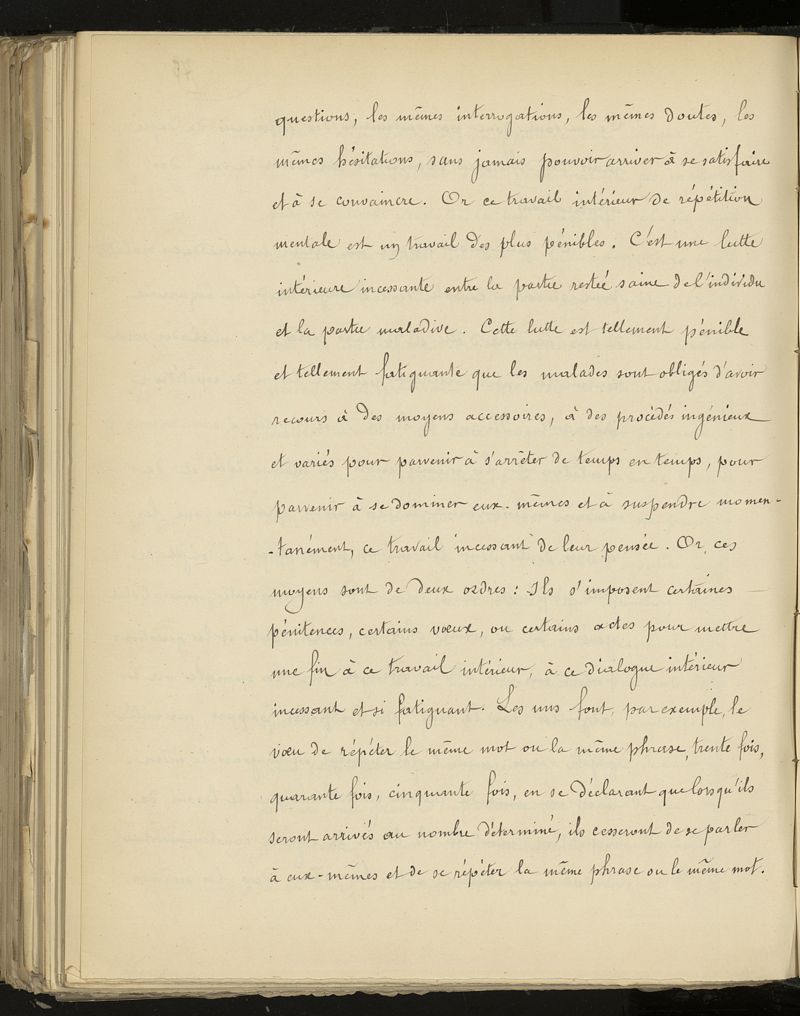 questions, les mêmes interrogations, les mêmes doutes, les
mêmes hésitations, sans jamais pouvoir arriver à se satisfaire
et à se convaincre. Or ce travail intérieur de répétition
mentale est un travail des plus pénibles. C'est une lutte
intérieure incessante entre la partie restée saine de l'individu
et la partie maladive. Cette lutte est tellement pénible
et tellement fatiguante que les malades sont obligés d'avoir
recours à des moyens accessoires, à des procédés ingénieux
et variés pour parvenir à s'arrêter de temps en temps, pour
parvenir à se dominer eux-mêmes et à suspendre momen-
-tanément, ce travail incessant de leur pensée. Or, ces
moyens sont de deux ordres : Ils s'imposent certaines
pénitences, certains vœux, ou certains actes pour mettre
une fin à ce travail intérieur, à ce dialogue intérieur
incessant et si fatiguant. Les uns font, par exemple, le
vœu de répéter le même mot ou la même phrase, trente fois,
quarante fois, cinquante fois, en se déclarant que lorsqu'ils
seront arrivés au nombre déterminé, ils cesseront de se parler
à eux-mêmes et de se répéter la même phrase ou le même mot.